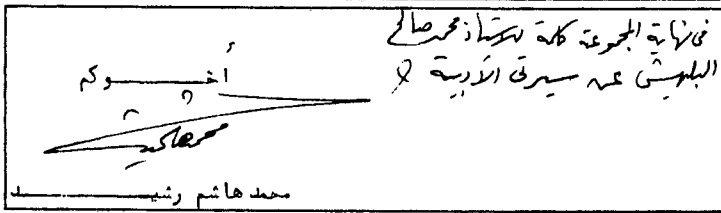 في نهاية المجموعة كلمة للأستاذ محمد صالح
البليهشي عن سيرتي الأدبية
أخوكم
محمد هاشم رشيد